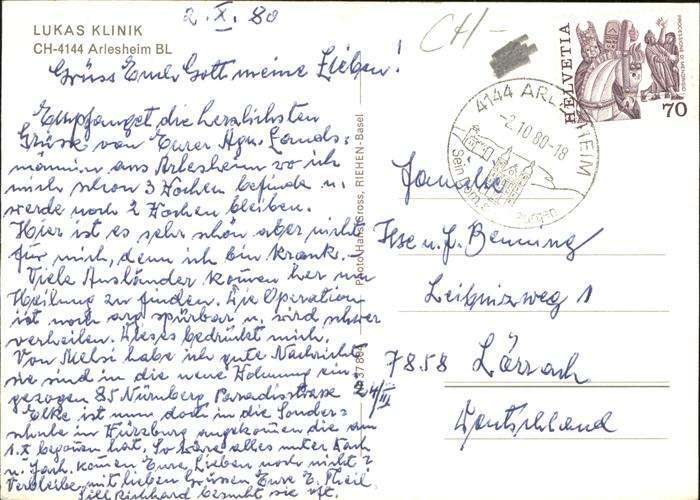 2.X.80
LUKAS KLINIK
CH-4144 Arlesheim BL
CH-
Grüss Euch Gott meine Lieben!
Empfanget die herzlichsten
Grüsse von Eurer Agn. Lands-
männin aus Arlesheim wo ich
mich schon 3 Wochen befinde u.
werde noch 2 Wochen bleiben.
Hier ist es sehr schön aber nicht
für mich, denn ich bin krank.-
Viele Ausländer kom̅en her um
Heilung zu finden. Die Operation
ist noch arg spürbar u. wird schwer
verheilen. Dieses bedrückt mich.
Von Melsi habe ich gute Nachrichten
sie sind in die neue Wohnung ein-
gezogen 85 Nürnberg Paradisstrasse 24/III
Elke ist nun doch in die Sonder-
schule in Würzburg angekom̅en die am
1.X begonnen hat. So wäre alles unter Dach
u. Fach. kom̅en Eure Lieben noch nicht?
Verbleibe mit lieben Grüssen Eure E. Theil.
Richard besucht sie oft.
Photo: Hans Gross, RIEHEN-Basel
HELVETIA
70
4144 ARLESHEIM
-2.10.80-18
Familie
Ilse u. J. Bennung
Leibnizweg 1
7858 Lörrach
Deutschland